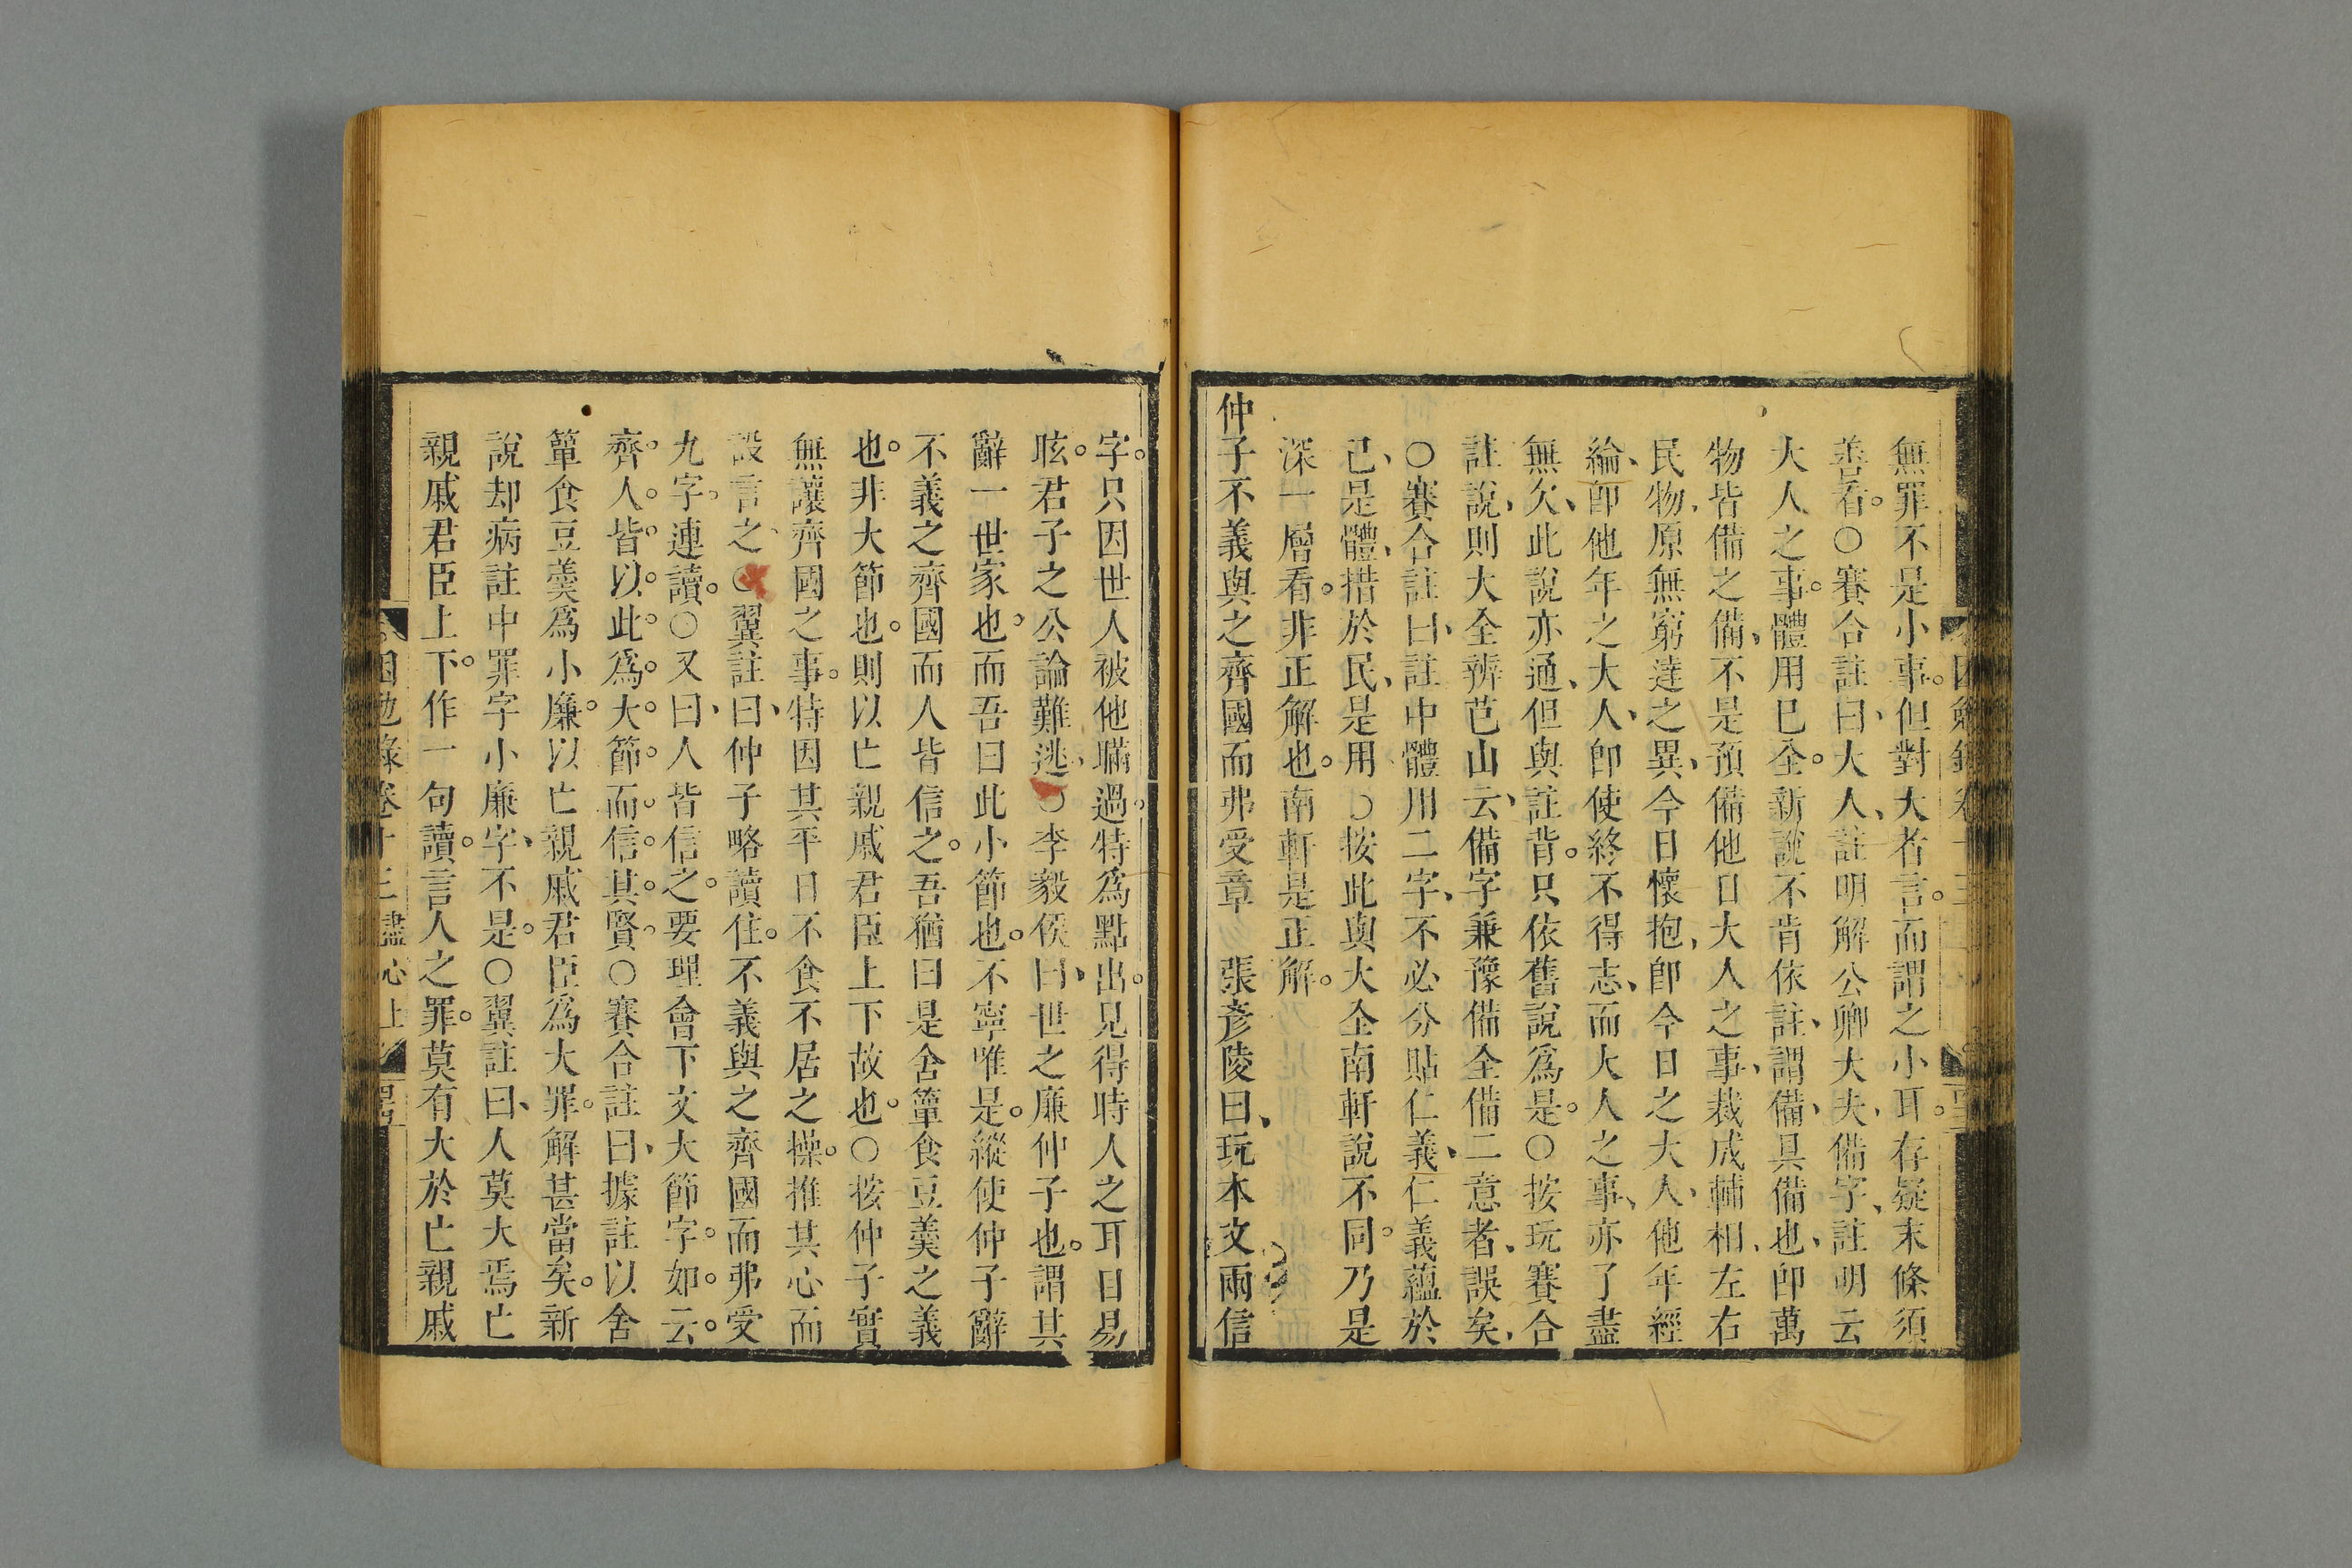 無罪不是小事。但對大者言。而謂之小耳。存疑末條須
善看。○賽合註曰、大人、註明解公卿大夫、備字、註明云
大人之事。體用已全。新說不肯依註、謂備、具備也、卽萬
物皆備之備、不是預備他日大人之事、裁成輔相、左右
民物、原無窮達之異、今日懷抱、卽今日之大人、他年經
綸、卽他年之大人、卽使終不得志、而大人之事、亦了盡
無欠、此說亦通、但與註背。只依舊說爲是。○按玩賽合
註說、則大全辨芑山云、備字兼豫備全備二意者、誤矣、
○賽合註曰、註中體用二字、不必分貼仁義、仁義蘊於
己、是體、措於民、是用○按此與大全南軒說不同。乃是
深一層看。非正解也。南軒是正解。
仲子不義與之齊國而弗受章　張彥陵曰、玩本文兩信
字。只因世人被他瞞過。特爲點出。見得時人之耳目易
眩。君子之公論難逃、○李毅侯曰、世之廉仲子也。謂其
辭一世家也。而吾曰此小節也。不寧唯是。縱使仲子辭
不義之齊國而人皆信之。吾猶曰是舍簞食豆羹之義
也。非大節也。則以亡親戚君臣上下故也。○按仲子實
無讓齊國之事。特因其平日不食不居之操。推其心而
設言之、○翼註曰、仲子略讀住。不義與之齊國而弗受
九字。連讀。○又曰、人皆信之。要理會下文大節字。如云。
齊。人。皆。以。此。爲。大。節。而。信。其。賢。○賽合註曰、據註以舍
簞食豆羹爲小廉。以亡親戚君臣爲大罪。解甚當矣。新
說却病註中罪字小廉字、不是。○翼註曰、人莫大焉亡
親戚君臣上下。作一句讀。言人之罪。莫有大於亡親戚
困勉錄卷十三盡心上